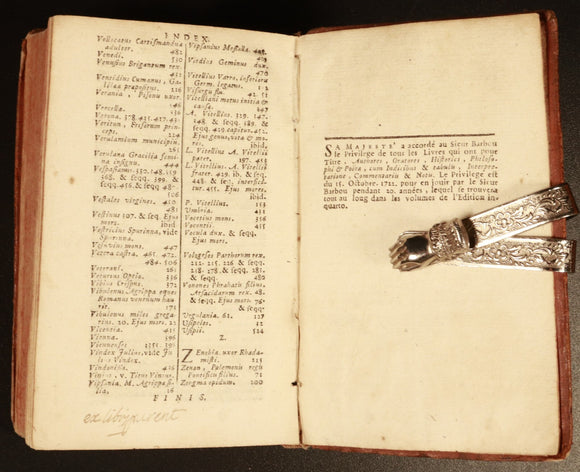 INDEX
Vollocatus Cartismanduæ
adulter. 482
Venedi. 530
Venusius Brigantum rex.
Ventidius Cumanus, Ga-
lilææ præpositus. 226
Verania, Pisonis uxor.
346
Vercellæ. 336
Verona. 378. 425. 427. 431
Veritus, Frisiorum prin-
ceps. 224
Verulamium municipium.
261
Verulana Gracilia fœmi-
na insignis. 444
Vespasianus. 330. 348. 359
368. & seqq. 399. &
seqq. 456 & seqq. 48-
Vestales virgines. 450
Vestinus 307. & seq. Ejus
mors. 32
Vestricius Spurinna, vide
Spurinna.
Vesuvius mons. 447
Vetera castra. 461. 472.
484. 506
Veterani. 261
Veturius Opsia. 336
Vibius Crispus. 372
Vibulenus Agrippa eques
Romanus venenum hau-
rit. 171
Vibuleius miles grega-
rius. 20. Ejus mors. 22
Vicentia. 425
Vienna. 500
Viennenses 3351. 396
Vindex Julius, vide Ju-
lius Vindex.
Vindonissa. 436
Vinius. v. Titus Vinius.
Vipsania, M. Agrippæ fi-
lia. 96
Vipsanius Messalla. 428.
Virdius Geminus dux.
470
Vitellius Varro, inferioris
Germ. legatus. 112
Visurgis flu. 42. 51
Vitelliani motus initia &
causæ. 447
A. Vitellius. 329. 147.
248. & seqq. 389. &
seqq. 429. capitur. 452.
Ejus genus, vita & mo-
res. ibid.
L. Vitellius A. Vitellii
pater. 197. 453
L. Vitellius. A. Vitellii
frater. 429. ib. & seq.
448. & seq. interfici-
tur. 455. Ejus mores.
ibid.
P. Vitellius. 153
Umbria. 431
Vocetius mons. 356
Vocontii. 355
Vocula dux. & seqq.
Vologeses Parthorum rex.
212. 215. 226 & seqq.
218. 278. & seqq. 281.
& seqq. 482
Vonones Phrahatis filius.
Arsacidarum rex. 48.
& seqq. Ejus mors. 76.
& seqq.
Urgulania. 62. 127
Usipetes. 12
Usipii. 524
Z.
Zenobia. uxor Rhada-
misti. 215
Zenon, Polemonis regis
Pontici filius. 71
Zeugma opidum. 200
FINIS.
ex libris
SA MAJESTE' a accordé au Sieur Barbou
le Privilege de tous les Livres qui ont pour
Titre, Authores, Oratores, Historici, Philoso-
phi & Poëtæ, cum Indicibus & tabulis, Interpre-
tatione, Commentariis & Notis. Le Privilege est
du 15. Octobre. 1721. pour en jouir par le Sieur
Barbou pendant 20. années, lequel se trouvera
tout au long dans les volumes de l'Edition in-
quarto.